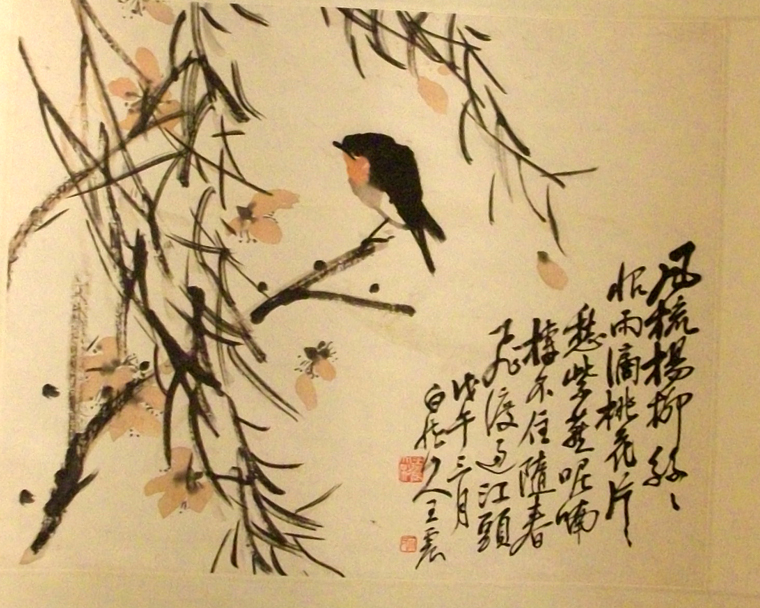 風梳楊柳絲〻
恨雨滴桃花片〻
愁紫燕呢喃
不住隨春
飛渡過江頭
戊午三月
白龍山人王震